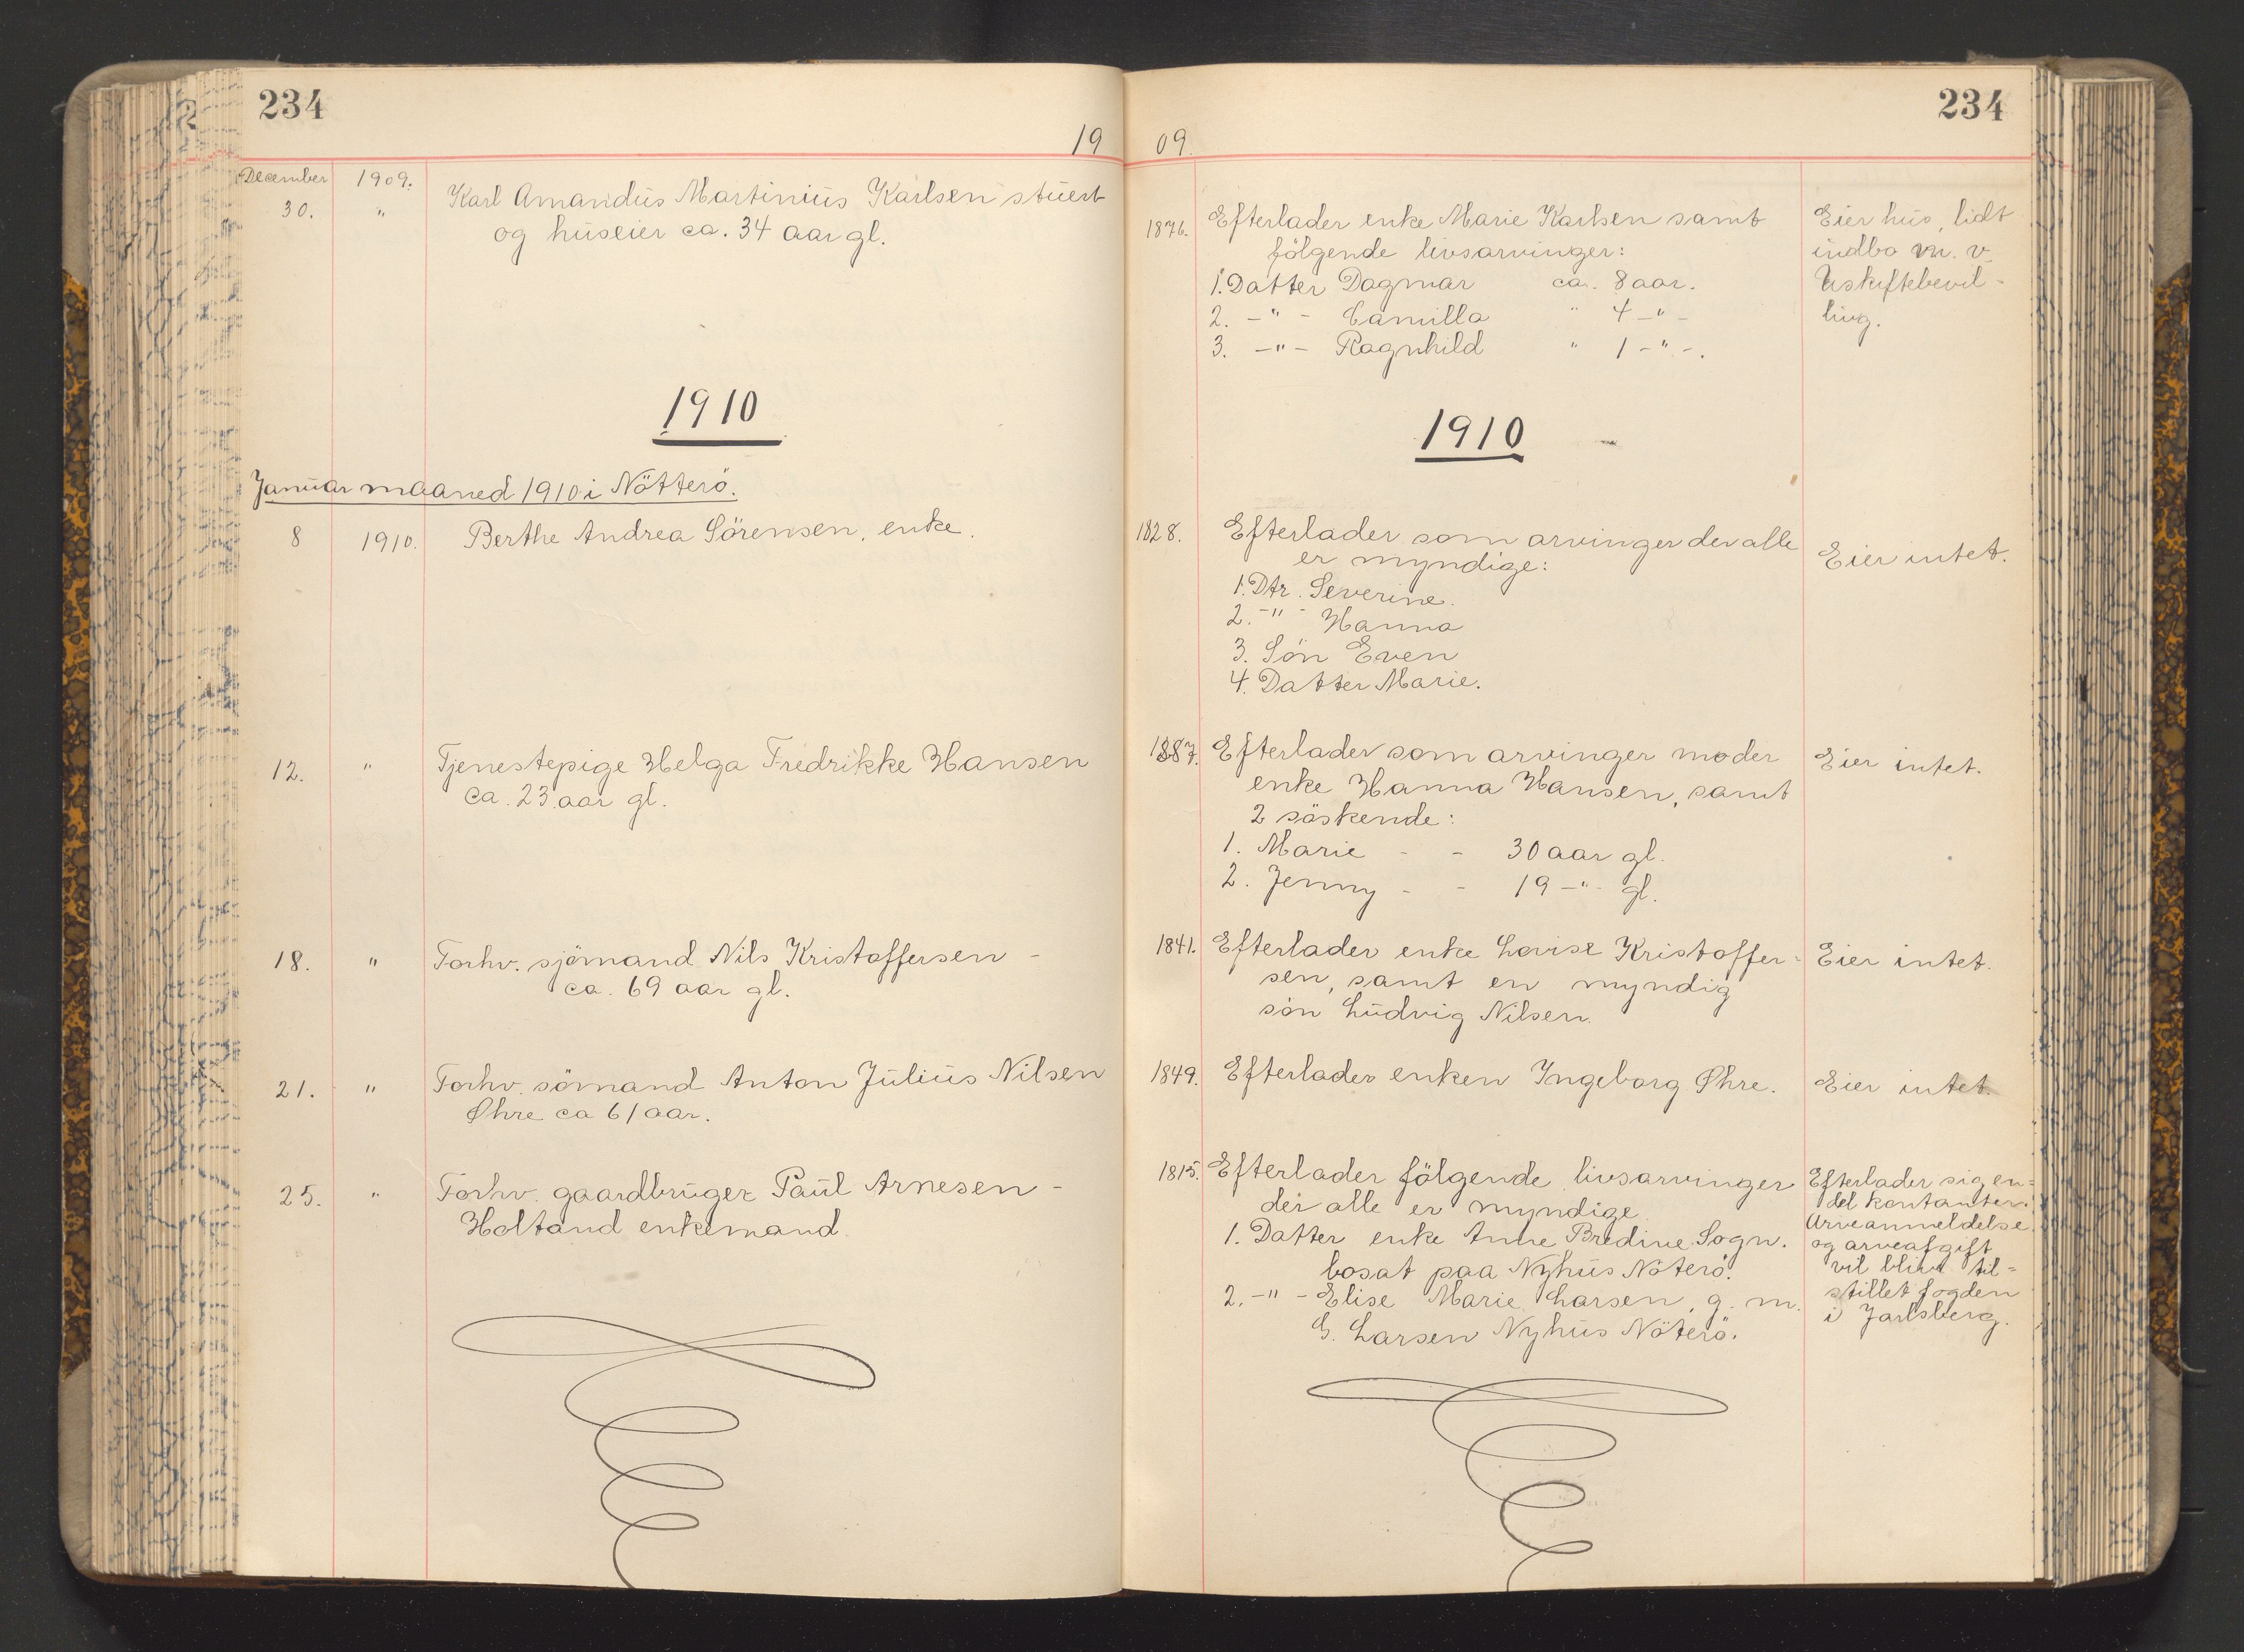 234
19
December 1909.
30. " Karl Amandus Martinius Karlsen stuert
og huseier ca. 34 aar gl.
1910
Januar maaned 1910 i Nötterö.
8 1910. Berthe Andrea Sörensen, enke.
12. " Tjenestepige Helga Fredrikke Hansen
ca. 23 aar gl.
18. " Forhv. sjömand Nils Kristoffersen -
ca. 69 aar gl.
21. " Forhv. sömand Anton Julius Nilsen
Øhre ca 61 aar.
25. " Forhv. gaardbruger Paul Arnesen -
Holtand enkemand.
234
09.
1876. Efterlader enke Marie Karlsen samt
fölgende livsarvinger:
1. Datter Dagmar ca. 8 aar.
2. -"- Camilla " 4 -"-
3. -"- Ragnhild " 1 -"-.
Eier hus, lidt
indbo m. v.
Uskiftebevil-
ling.
1910
1828. Efterlader som arvinger der alle
er myndige:
1. Dtr. Severine.
2. -"- Hanna
3. Sön Even
4. Datter Marie.
Eier intet.
1887. Efterlader som arvinger moder
enke Hanna Hansen, samt
2 söskende:
1. Marie - - 30 aar gl.
2. Jenny - - 19 -"- gl.
Eier intet.
1841. Efterlader enke Lovise Kristoffer-
sen, samt en myndig
sön Ludvig Nilsen.
Eier intet.
1849. Efterlader enken Ingeborg Øhre.
Eier intet.
1815. Efterlader fölgende livsarvinger
der alle er myndige
1. Datter enke Anne Bredine Sogn.
bosat paa Nyhus Nöterö.
2. -"- Elise Marie Larsen, g. m.
G. Larsen Nyhus Nöterö.
Efterlader sig en-
del kontanter.
Arveanmeldelse
og arveafgift
vil blive til-
stillet fogden
i Jarlsberg.